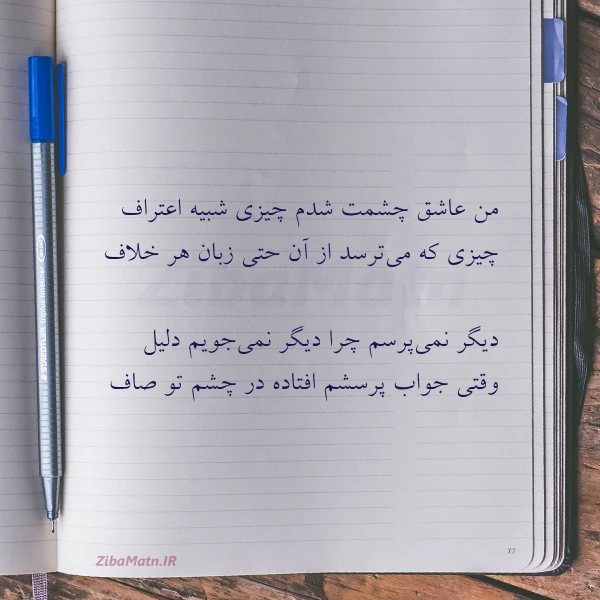 من عاشق چشمت شدم چیزی شبیه اعتراف
چیزی که می‌ترسد از آن حتی زبان هر خلاف
دیگر نمی‌پرسم چرا دیگر نمی‌جویم دلیل
وقتی جواب پرسشم افتاده در چشم تو صاف
ZibaMatn.IR